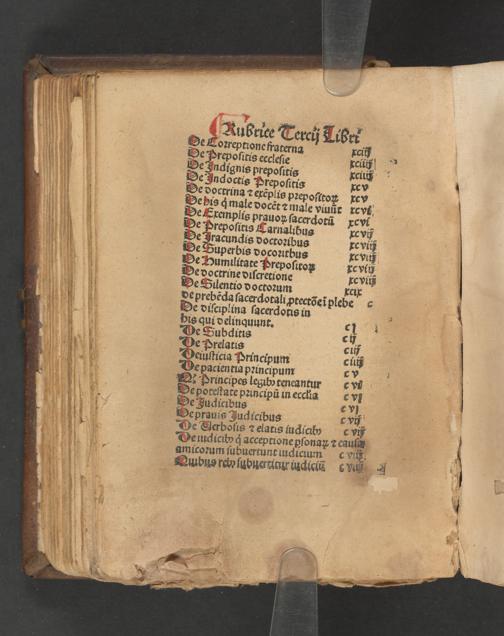 Rubrice Tercij Libri
De Correptione fraterna xciiij
De Prepositis ecclesie xciiij
De Indignis prepositis xciiij
De Indoctis Prepositis xcv
De doctrina ⁊ exēplis prepositoꝝ xcv
De his q̇ male docēt ⁊ male viuūt xcvi
De Exemplis prauoꝝ sacerdotū xcvi
De Prepositis Carnalibus xcvij
De Iracundis doctoribus xcviij
De Superbis doctoribus xcviij
De Humilitate Prepositoꝝ xcviij
De doctrine discretione xcviij
De Silentio doctorum xcix
de prebēda sacerdotali ꝓtectōe ī plebe c
De disciplina sacerdotis in
his qui delinquunt. cj
De Subditis cij
De Prelatis ciij
De iusticia Principum ciiij
De pacientia principum cv
Principes legibꝫ teneantur cvi
De potestate principū in ecclīa cvj
De Iudicibus cvj
De prauis Iudicibus cvij
De Verbosis ⁊ elatis iudicibꝫ cviij
De iudicibꝫ q̇ acceptione ꝑsonaꝝ ⁊ causa
amicorum subuertunt iudicium cviij
Quibus rebꝫ subuertitur iudiciū cviij